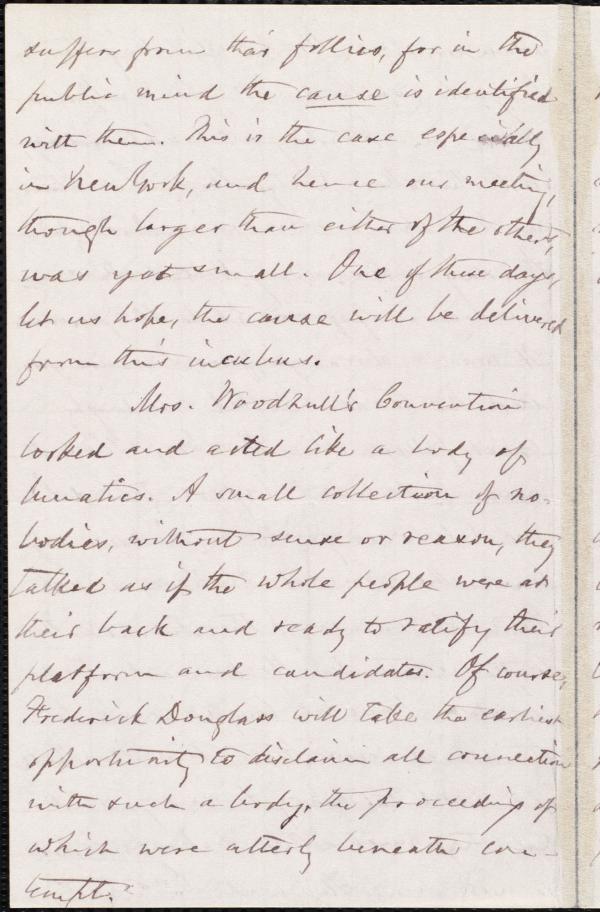 suffers from their follies, for in the
public mind the cause is identified
with them. This is the case especially
in New York, and hence our meeting,
though larger than either of the others,
was yet small. One of these days,
let us hope, the cause will be delivered
from this incubus.
Mrs. Woodhull's Convention
looked and acted like a body of
lunatics. A small collection of no-
bodies, without sense or reason, they
talked as if the whole people were at
their back and ready to ratify their
platform and candidates. Of course,
Frederick Douglass will take the earliest
opportunity to disclaim all connection
with such a body, the proceedings of
which were utterly beneath con-
tempt.